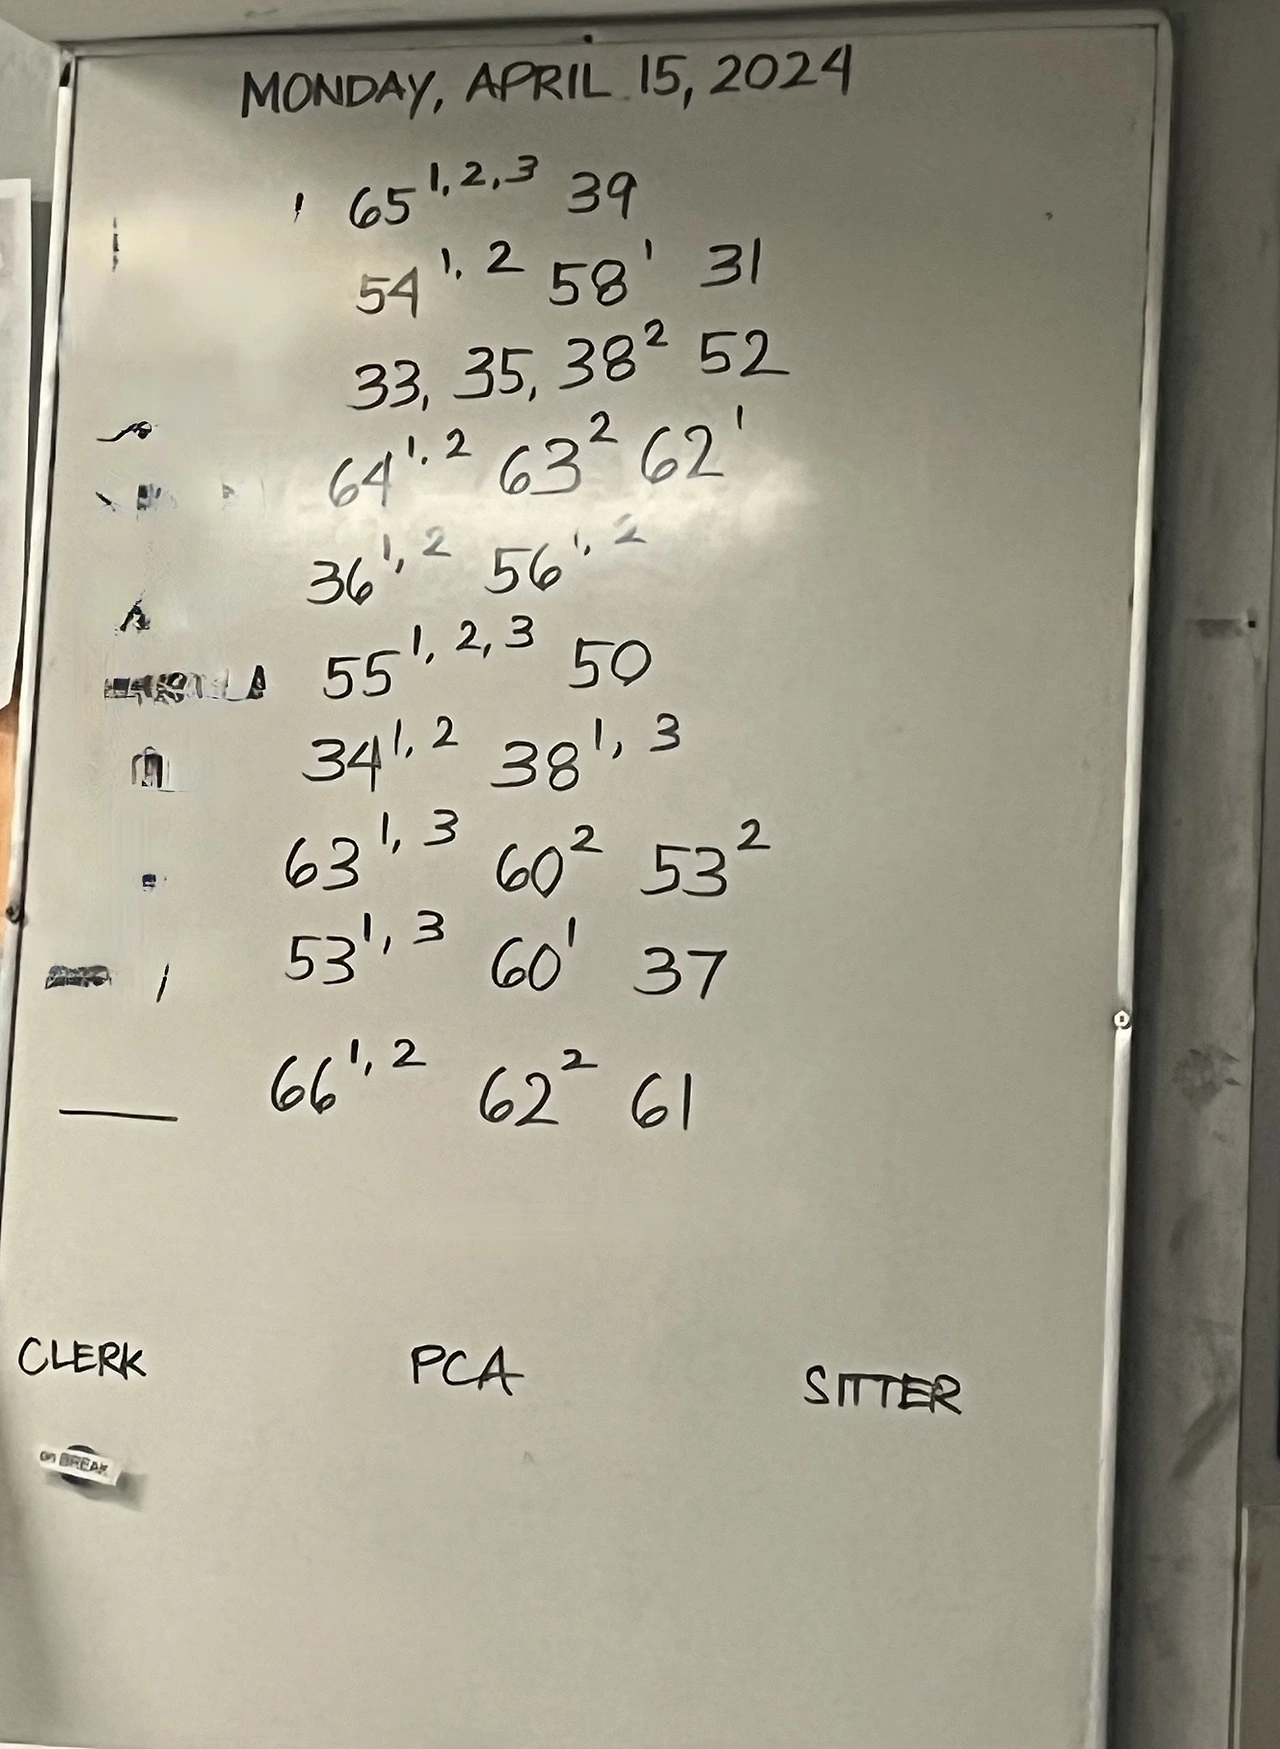 MONDAY, APRIL 15, 2024
65 1, 2, 3 39
54 1, 2 58 1 31
33, 35, 38 2 52
64 1, 2 63 2 62 1
36 1, 2 56 1, 2
55 1, 2, 3 50
34 1, 2 38 1, 3
63 1, 3 60 2 53 2
53 1, 3 60 1 37
66 1, 2 62 2 61
CLERK PCA SITTER
ON BREAK